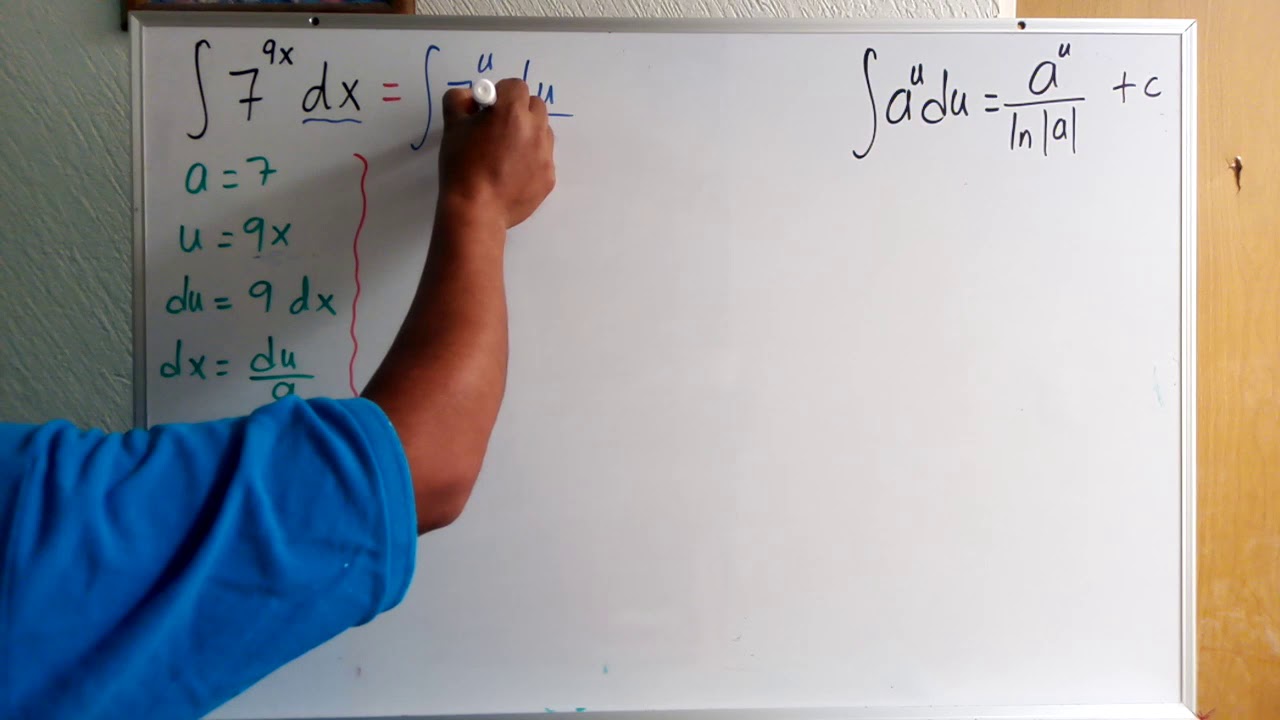 ∫ 7^{9x} dx = ∫ 7^u du
∫ a^u du = a^u / ln|a| + c
a = 7
u = 9x
du = 9 dx
dx = du / 9